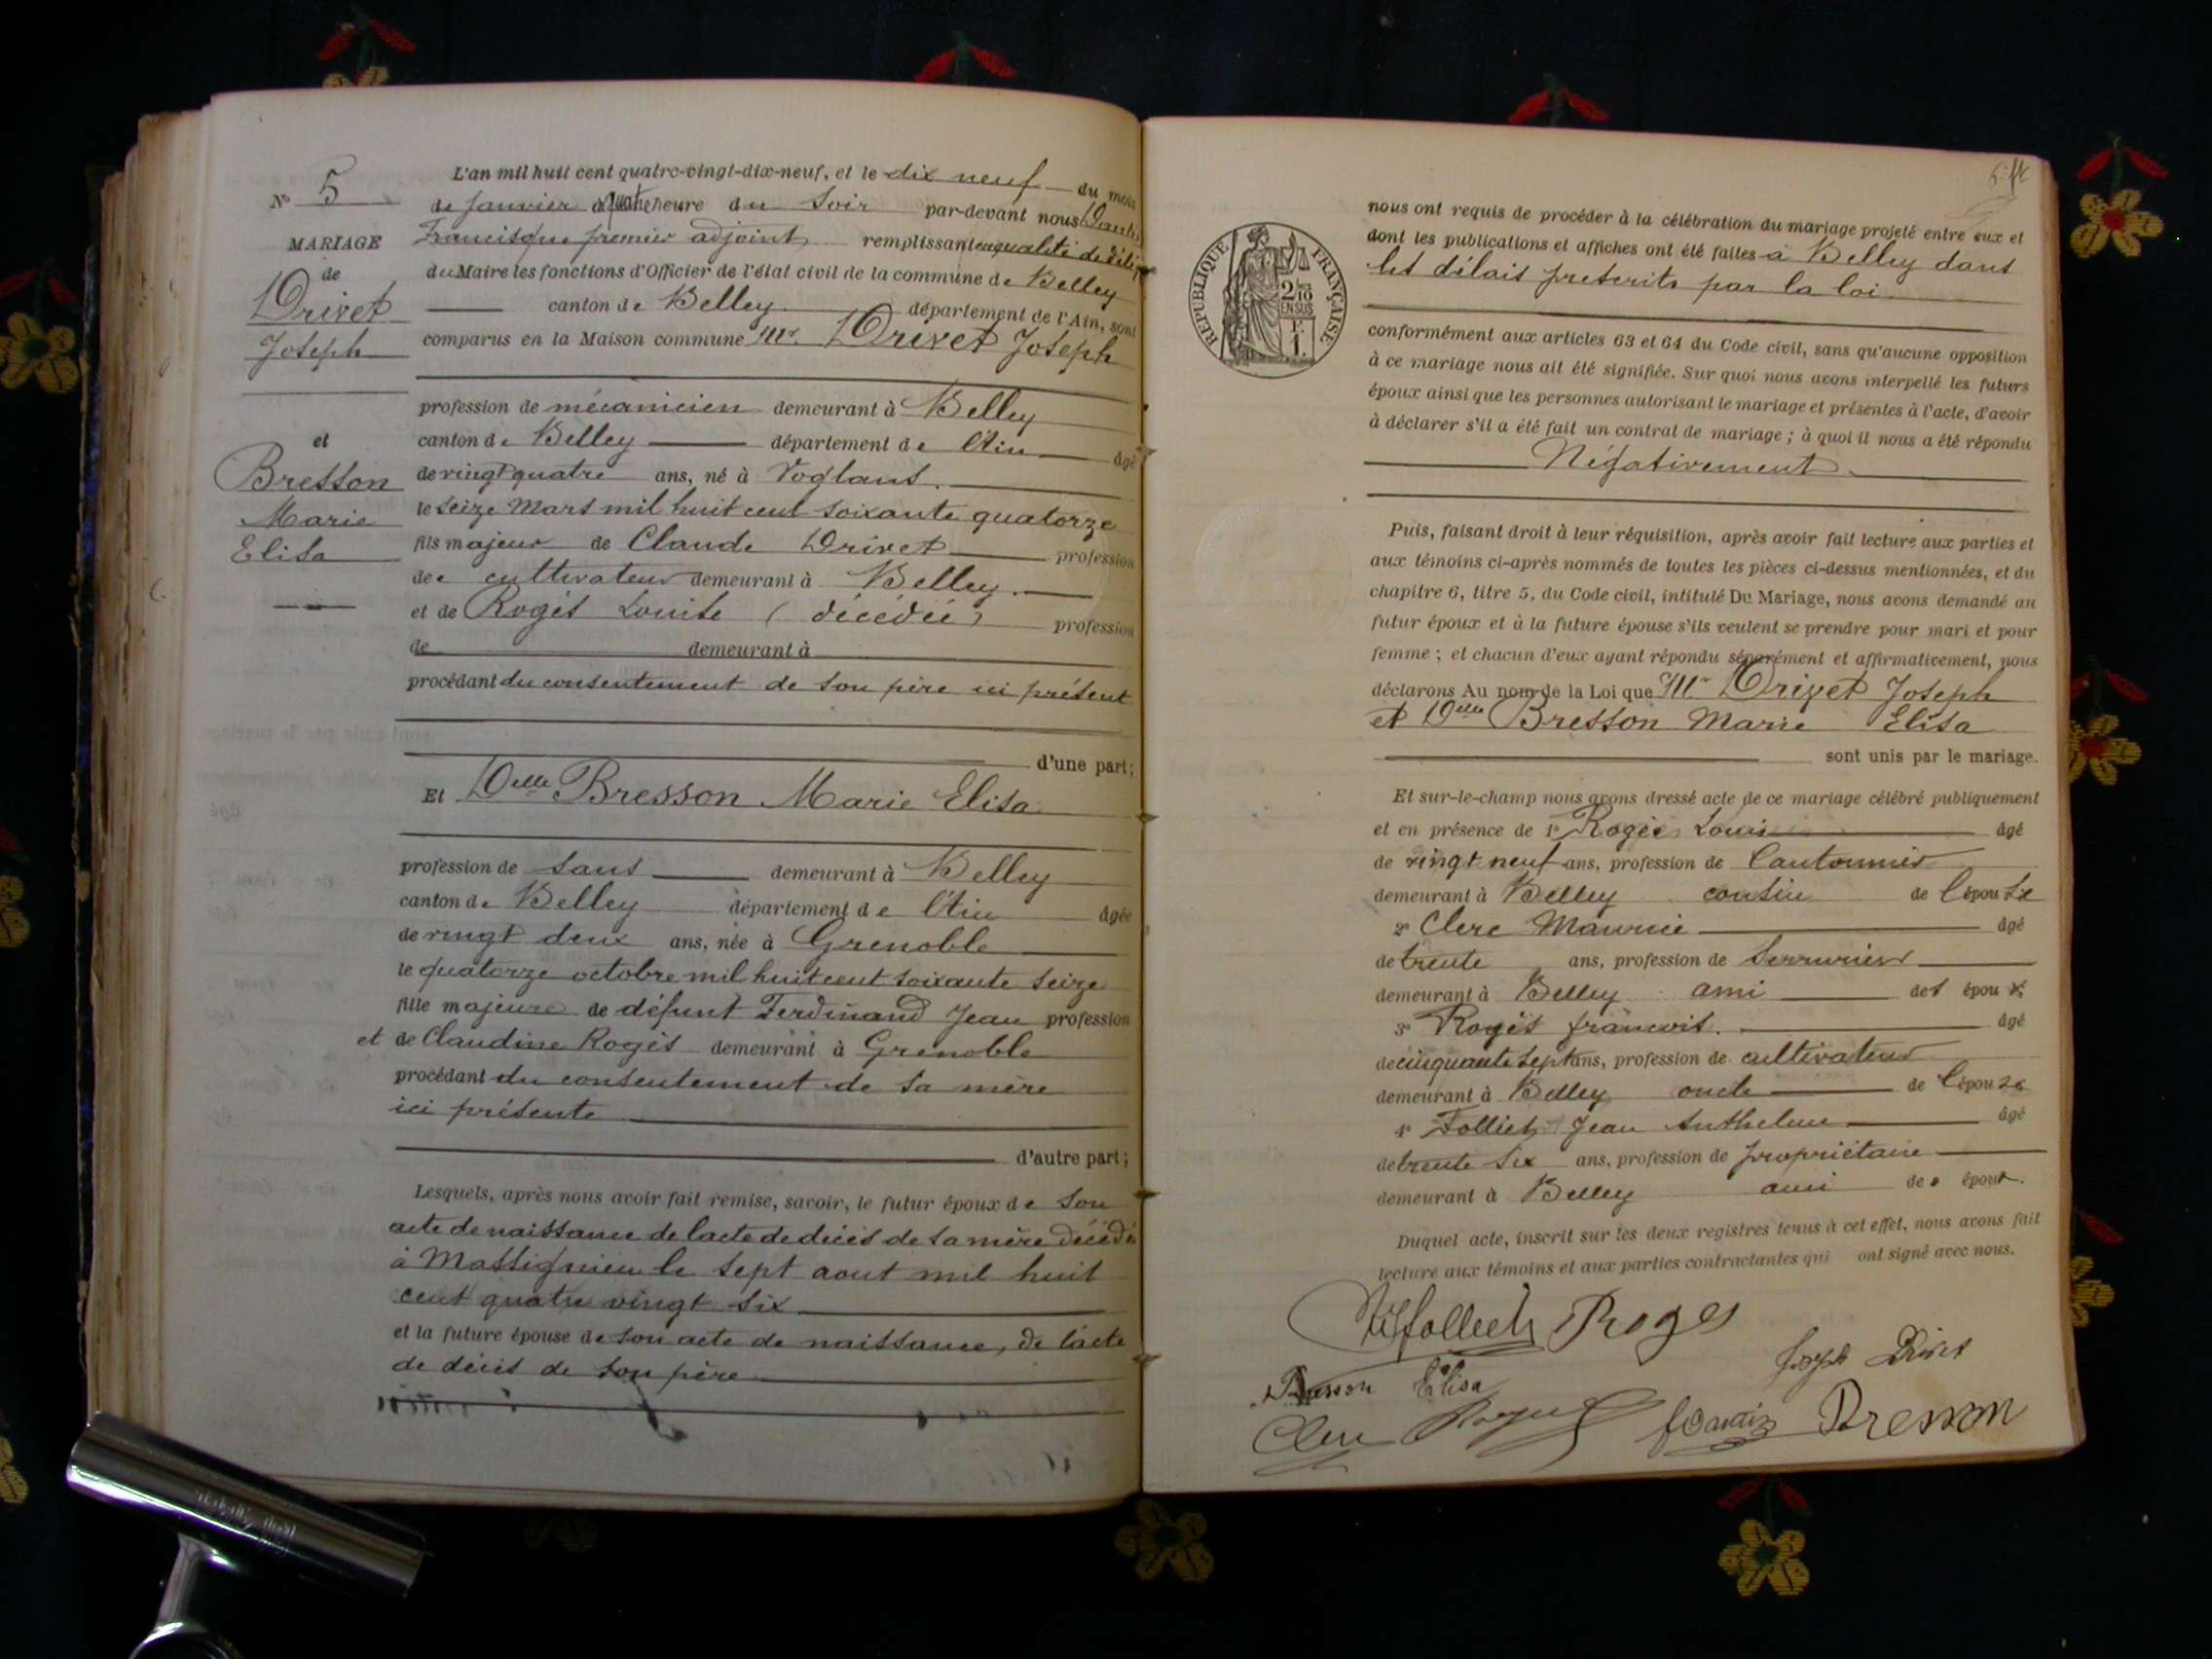 N° 5
MARIAGE
de
Drivet
Joseph
et
Bresson
Marie
Elisa
L'an mil huit cent quatre-vingt-dix-neuf, et le dix neuf du mois
de Janvier à quatre heure du Soir par-devant nous
Francisque premier adjoint, remplissant en qualité de
du Maire les fonctions d'Officier de l'état civil de la commune de Belley
canton de Belley département de l'Ain, sont
comparus en la Maison commune Mr. Drivet Joseph
profession de mécanicien demeurant à Belley
canton de Belley département de l'Ain âgé
de vingt quatre ans, né à Voglans.
le seize Mars mil huit cent soixante quatorze
fils majeur de Claude Drivet profession
de cultivateur demeurant à Belley.
et de Rogès Louise (décédée) profession
de demeurant à
procédant du consentement de son père ici présent
d'une part;
Et Delle Bresson Marie Elisa
profession de sans demeurant à Belley
canton de Belley département de l'Ain âgée
de vingt deux ans, née à Grenoble
le quatorze octobre mil huit cent soixante seize
fille majeure de défunt Ferdinand Jean profession
et de Claudine Rogès demeurant à Grenoble
procédant du consentement de sa mère
ici présente
d'autre part;
Lesquels, après nous avoir fait remise, savoir, le futur époux de son
acte de naissance de l'acte de décès de sa mère décédée
à Massignieu le sept aout mil huit
cent quatre vingt six
et la future épouse de son acte de naissance, de l'acte
de décès de son père
RÉPUBLIQUE FRANÇAISE
2/10 EN SUS
1F.
nous ont requis de procéder à la célébration du mariage projeté entre eux et
dont les publications et affiches ont été faites à Belley dans
les délais prescrits par la loi.
conformément aux articles 63 et 64 du Code civil, sans qu'aucune opposition
à ce mariage nous ait été signifiée. Sur quoi nous avons interpellé les futurs
époux ainsi que les personnes autorisant le mariage et présentes à l'acte, d'avoir
à déclarer s'il a été fait un contrat de mariage ; à quoi il nous a été répondu
Négativement
Puis, faisant droit à leur réquisition, après avoir fait lecture aux parties et
aux témoins ci-après nommés de toutes les pièces ci-dessus mentionnées, et du
chapitre 6, titre 5, du Code civil, intitulé Du Mariage, nous avons demandé au
futur époux et à la future épouse s'ils veulent se prendre pour mari et pour
femme ; et chacun d'eux ayant répondu séparément et affirmativement, nous
déclarons Au nom de la Loi que Mr Drivet Joseph
et Delle Bresson Marie Elisa
sont unis par le mariage.
Et sur-le-champ nous avons dressé acte de ce mariage célébré publiquement
et en présence de 1° Rogès Louis âgé
de vingt neuf ans, profession de Cantonnier
demeurant à Belley cousin de l'épouse
2° Clerc Maurice âgé
de trente ans, profession de Serrurier
demeurant à Belley ami des époux
3° Rogès françois. âgé
de cinquante sept ans, profession de cultivateur
demeurant à Belley oncle de l'épouse
4° Folliet Jean Anthelme âgé
de trente six ans, profession de propriétaire
demeurant à Belley ami des époux.
Duquel acte, inscrit sur les deux registres tenus à cet effet, nous avons fait
lecture aux témoins et aux parties contractantes qui ont signé avec nous.
Roges
Joseph Drivet
Bresson Elisa
Clerc Bresson